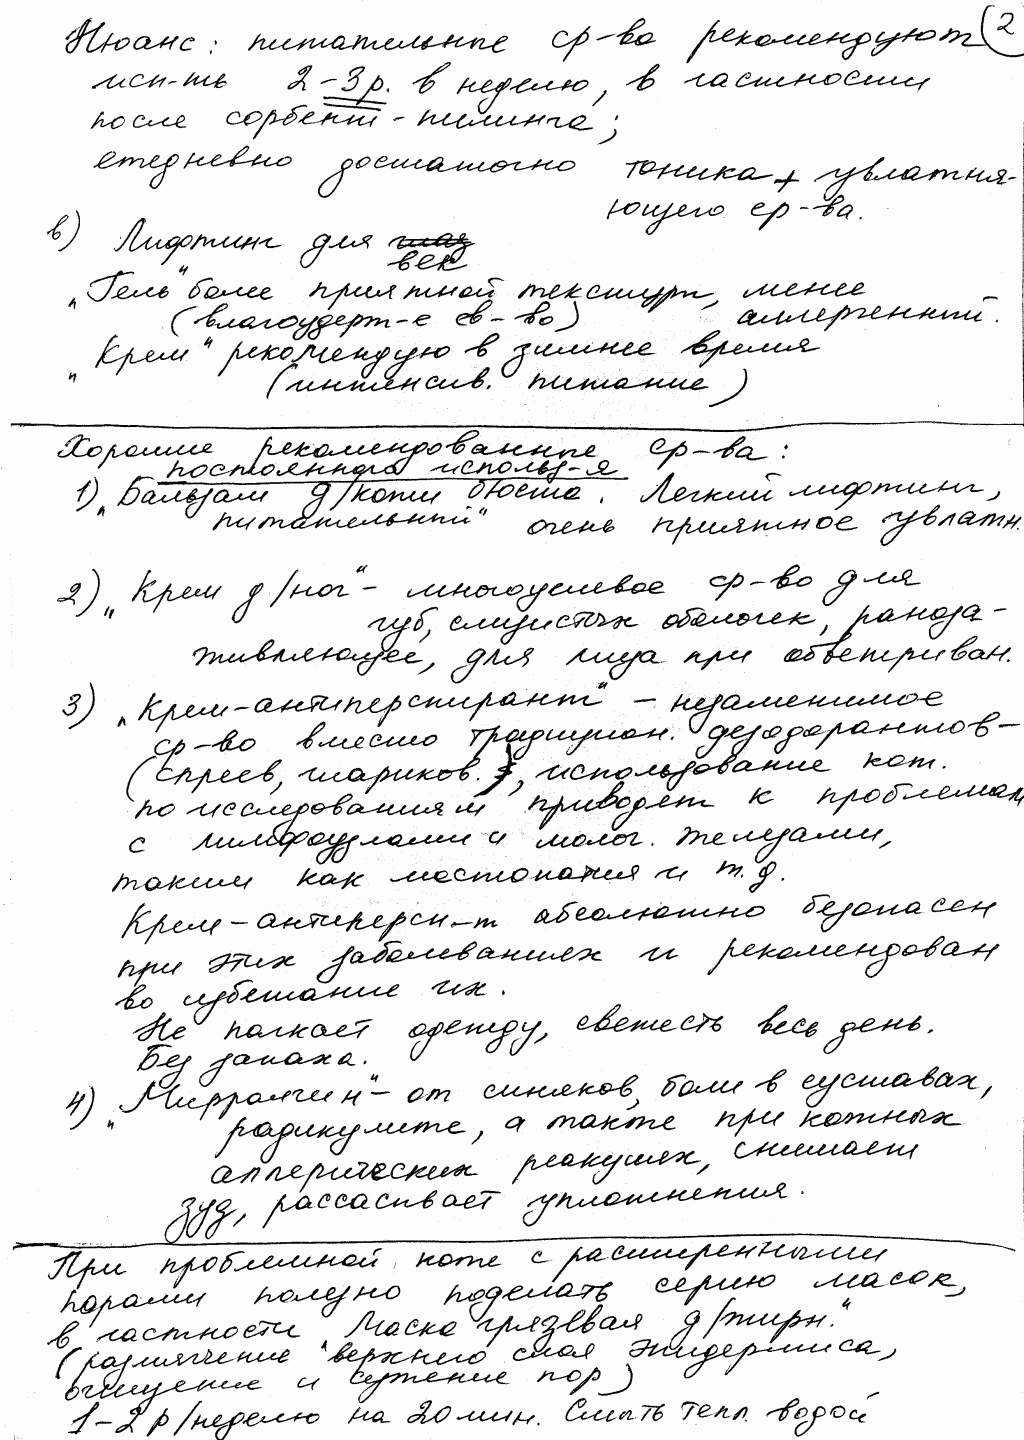 2
Нюанс: питательные ср-ва рекомендуют
исп-ть 2-3 р. в неделю, в частности
после сорбент-пилинга;
ежедневно достаточно тоника + увлажня-
ющего ср-ва.
в) Лифтинг для глаз
век
"Гель" более приятной текстуры, менее
(влагоудерж-е св-во) аллергенный.
"Крем" рекомендую в зимнее время
(интенсив. питание)
Хорошие рекомендованные ср-ва:
постоянного использ-я
1) "Бальзам д/кожи бюста. Легкий лифтинг,
питательный" очень приятное увлажн.
2) "Крем д/ног" - многоцелевое ср-во для
губ, слизистых оболочек, раноза-
живляющее, для лица при обветриван.
3) "Крем-антиперспирант" - незаменимое
ср-во вместо традицион. дезодорантов-
(спреев, шариков.), использование кот.
по исследованиям приводят к проблемам
с лимфоузлами и молоч. железами,
таким как мастопатия и т.д.
Крем-антиперсп-т абсолютно безопасен
при этих заболеваниях и рекомендован
во избежание их.
Не пачкает одежду, свежесть весь день.
Без запаха.
4) "Мирролгин" - от синяков, боли в суставах,
радикулите, а также при кожных
аллергических реакциях, снимает
зуд, рассасывает уплотнения.
При проблемной коже с расширенными
порами полезно поделать серию масок,
в частности "Маска грязевая д/жирн."
(размягчение верхнего слоя эпидермиса,
очищение и сужение пор)
1-2 р/неделю на 20 мин. Смыть тепл. водой